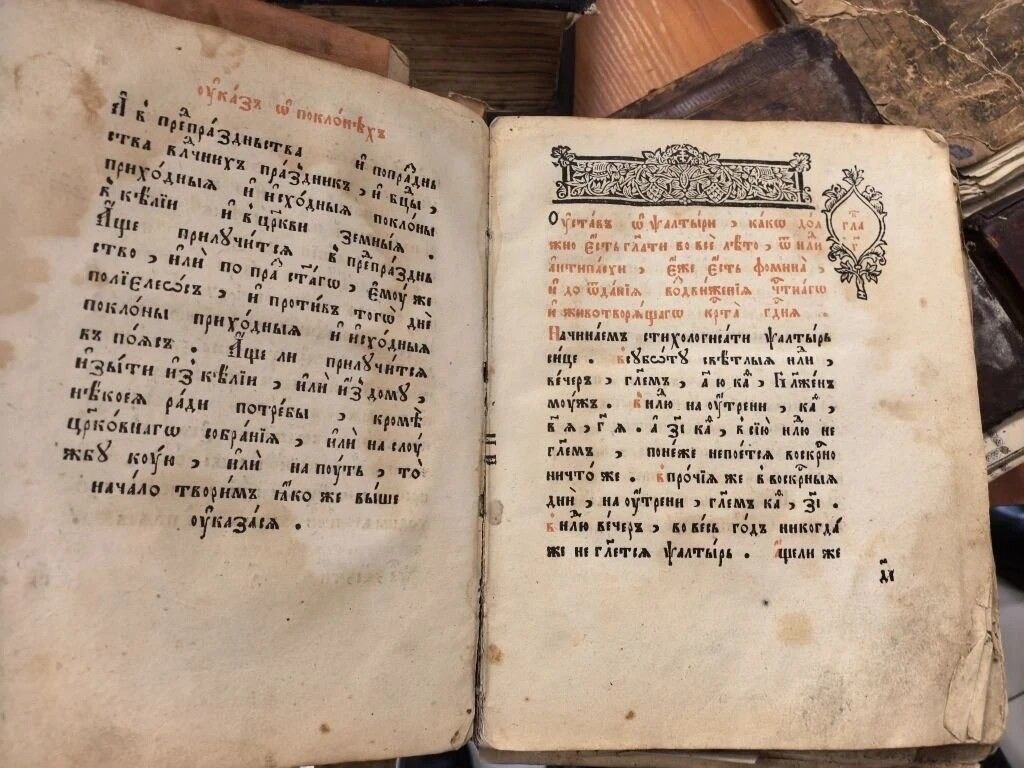 ᲂу҆ка́зъ ѡ҆ покло́нѣхъ
А҆ в҆ пре́пра́здньства и҆ попра́днь
ства влⷣчнихъ пра́здникъ, и҆ бцⷣы,
прихо́дныѧ и҆ и҆схо́дныѧ покло́ны
в҆ ке́лїи и҆ в҆ цр҃кви земны́ѧ .
А҆ще прилꙋчи́тсѧ в҆ препра́зднь
ство, и҆лѝ по пра́ ст҃а́гѡ, є҆мꙋ́ же
полїеле́ѡсъ, и҆ проти́въ тогѡ̀ днѐ
покло́ны прихо́дныѧ и҆ и҆схо́дныѧ
въ по́ѧсъ . А҆ще ли прилꙋчи́тсѧ
и҆зы́ти и҆з̾ ке́лїи, и҆лѝ и҆з̾ до́мꙋ,
нѣ́коеѧ ра́ди потре́бы, кромѣ̀
цр҃ко́внагѡ собра́нїѧ, и҆лѝ на слоу́
жбꙋ кꙋ́ю, и҆лѝ на пꙋ́ть, то̀
нача́ло твори́мъ ꙗ҆́ко же вы́ше
ᲂу҆каза́сѧ .
Оу҆ста́въ ѡ҆ ѱалты́ри, ка́кѡ дол
жно є҆́сть гл҃ати во всѐ лѣ́то, ѿ нⷣли
а҆нтипа́схи, є҆́же є҆́сть ѳомина̀,
и҆ до ѿда́нїѧ воⷥдви́женїѧ чтⷭ҇на́гѡ
и҆ животворѧ́щагѡ крⷭ҇та̀ гдⷭ҇нѧ .
гла
Начина́емъ стихологиса́ти ѱалты́рь
си́це . в҆ сꙋббѡ́тꙋ свѣ́тлыѧ нⷣли,
ве́черъ, гл҃емъ, а҃ ю каⷴ, Бл҃же́нъ
мꙋ́жъ . в҆ нⷣлю на ᲂу҆́трени, каⷴ,
в҃ ѧ, г҃ ѧ . а҆ з҃і каⷴ, в҆ сїю̀ нⷣлю не
гл҃емъ, поне́же непое́тсѧ воскрⷭ҇но
ничто́ же . в҆ про́чїѧ же в҆ воскрⷭ҇ныѧ
дни̑, на ᲂу҆́трени, гл҃емъ каⷴ, з҃і .
в҆ нⷣлю ве́черъ, во ве́сь го́дъ никогда́
же не гл҃етсѧ ѱалты́рь . а҆́щели же